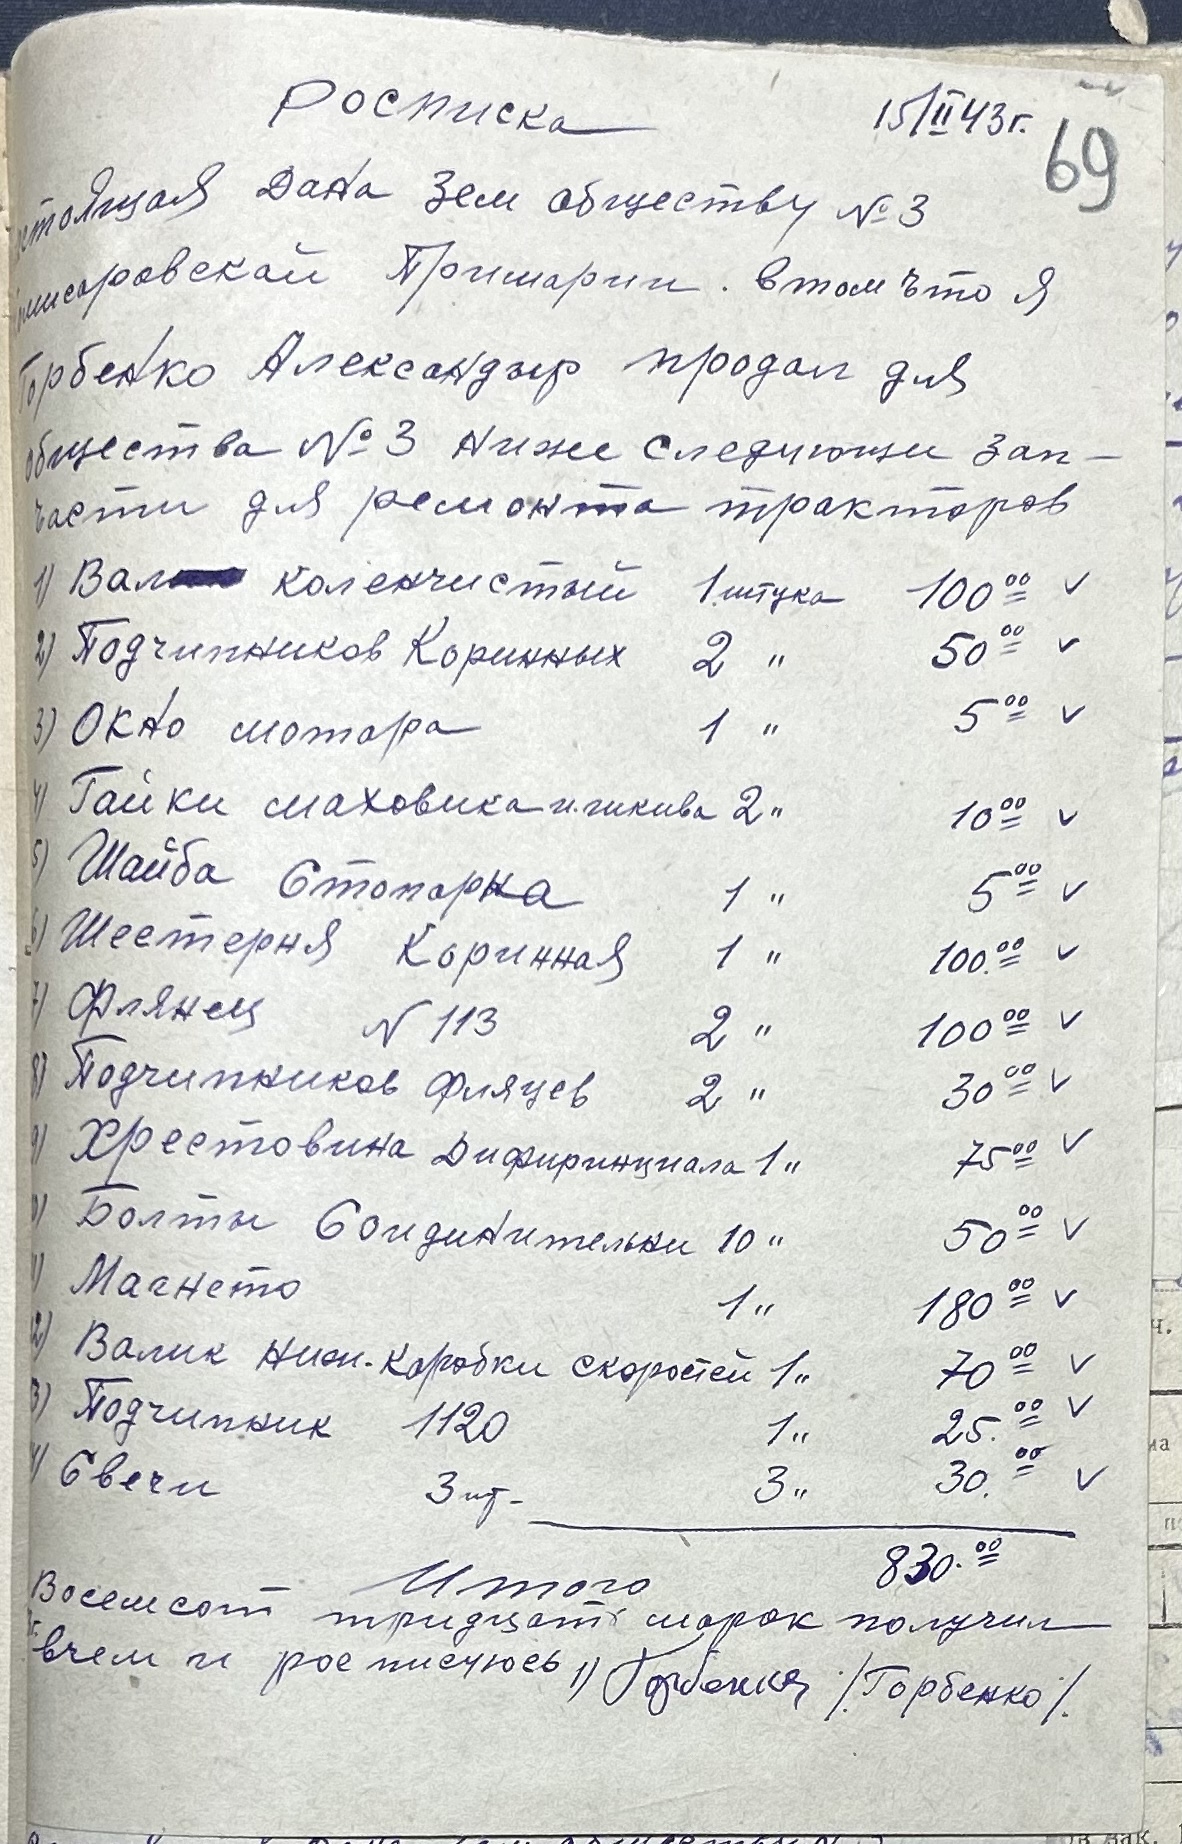 Росписка 15/II 43г.
69
стоящая Дана Зем обществу №3
мисаровской Примарии. втом что я
Горбенко Александыр продал для
общества №3 ниже следующи зап-
части для ремонта тракторов
1) Вал коленчистый 1 штука 100 00 ✓
2) Подчипников Коринных 2 " 50 00 ✓
3) Окно мотора 1 " 5 00 ✓
4) Гайки маховика и шкива 2 " 10 00 ✓
5) Шайба Стопарна 1 " 5 00 ✓
6) Шестерня Коринная 1 " 100. 00 ✓
7) Флянец N 113 2 " 100 00 ✓
8) Подчипников Фляцев 2 " 30 00 ✓
9) Хрестовина Дифиринциала 1 " 75 00 ✓
0) Болты Соидинительни 10 " 50 00 ✓
1) Магнето 1 " 180 00 ✓
2) Валик ниж. коробки скоростей 1 " 70 00 ✓
3) Подчипник 1120 1 " 25. 00 ✓
4) Свечи 3 шт. 3 " 30. 00 ✓
Итого 830. 00
Восемсот тридцать марок получил
вчем и росписуюсь 1) Горбенко /Горбенко/.